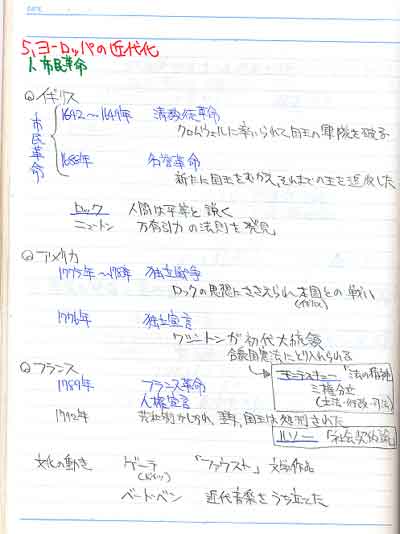 DATE
5,ヨーロッパの近代化
1、市民革命
◎イギリス
市民革命
1642～1649年 清教徒革命
クロムウェルに率いられて国王の軍隊を破る
1688年 名誉革命
新たに国王をむかえ、それまでの王を追放した
ロック 人間は平等と説く
ニュートン 万有引力の法則を発見
◎アメリカ
1775年～1783年 独立戦争
ロックの思想にささえられ、本国との戦い
(イギリス)
1776年 独立宣言
ワシントンが初代大統領
合衆国憲法にとり入れられる
◎フランス
モンテスキュー「法の精神」
三権分立
(立法・行政・司法)
1789年 フランス革命
人権宣言
1792年 共和制がしかれ、翌年、国王は処刑された
ルソー「社会契約論」
文化の動き ゲーテ 「ファウスト」 文学作品
(ドイツ)
ベートーベン 近代音楽をうち立てた